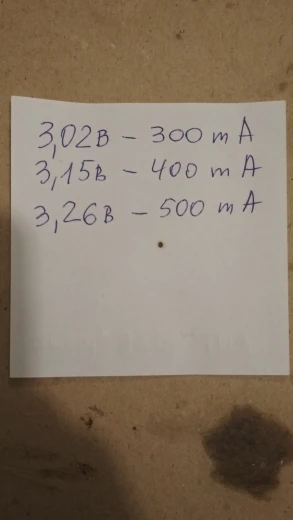 3,02В – 300 mA
3,15В – 400 mA
3,26В – 500 mA